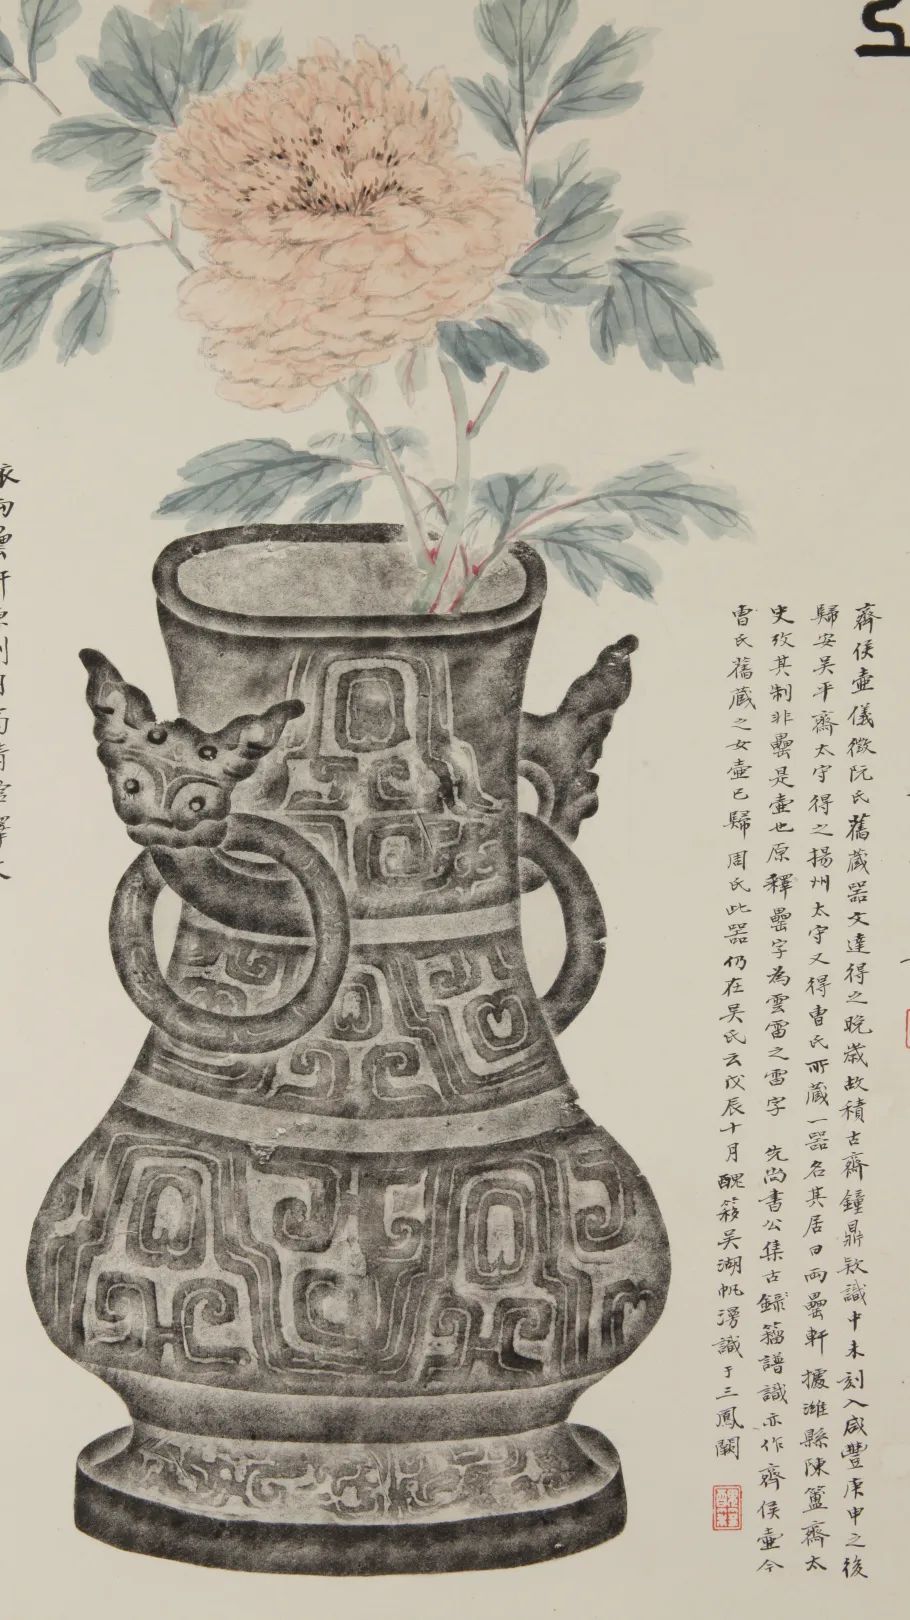 齊侯壺儀徵阮氏舊藏器文達得之晚歲故積古齋鐘鼎款識中未刻入咸豐庚申之後
歸安吳平齋太守得之揚州太守又得曹氏所藏一器名其居曰兩罍軒據濰縣陳簠齋太
史攷其制非罍是壺也原釋罍字為雲雷之雷字 先尚書公集古錄籀譜識亦作齊侯壺今
曹氏舊藏之女壺已歸周氏此器仍在吳氏云戊辰十月醜簃吳湖帆湧識于三鳳闕